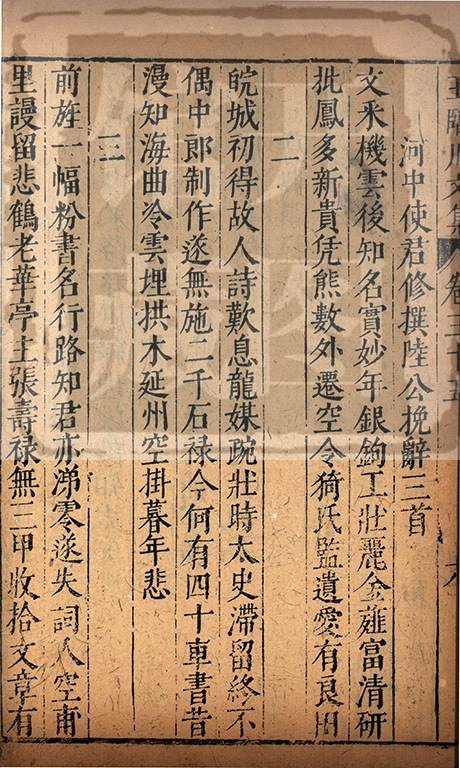 王臨川文集 卷三十五 六
河中使君修撰陸公挽辭三首
文采機雲後知名實妙年銀鉤工壯麗金薤富清研
批鳳多新貴凭熊數外遷空令猗氏監遺愛有良田
二
皖城初得故人詩歎息龍媒踠壯時太史滯留終不
偶中郎制作遂無施二千石祿今何有四十車書昔
漫知海曲冷雲埋拱木延州空掛暮年悲
三
前旌一幅粉書名行路知君亦涕零遂失詞人空甫
里謾留悲鶴老華亭主張壽祿無三甲收拾文章有